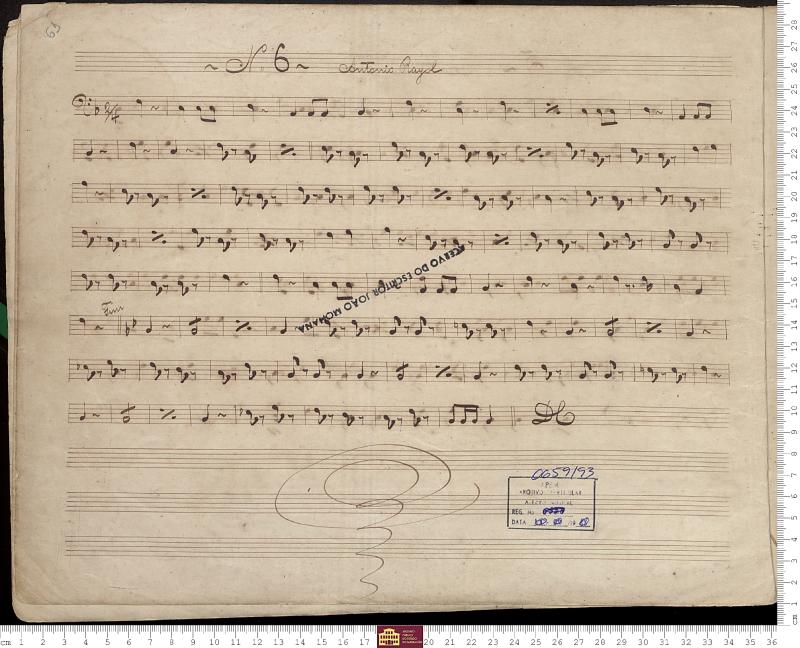 63
~ N. 6 ~ Antonio Rayol
2/4
ACERVO DO ESCRITOR JOÃO MOHANA
Fim
DC
0659/93
REG. No
DATA
cm 1 2 3 4 5 6 7 8 9 10 11 12 13 14 15 16 17 20 21 22 23 24 25 26 27 28 29 30 31 32 33 34 35 36
cm 1 2 3 4 5 6 7 8 9 10 11 12 13 14 15 16 17 18 19 20 21 22 23 24 25 26 27 28